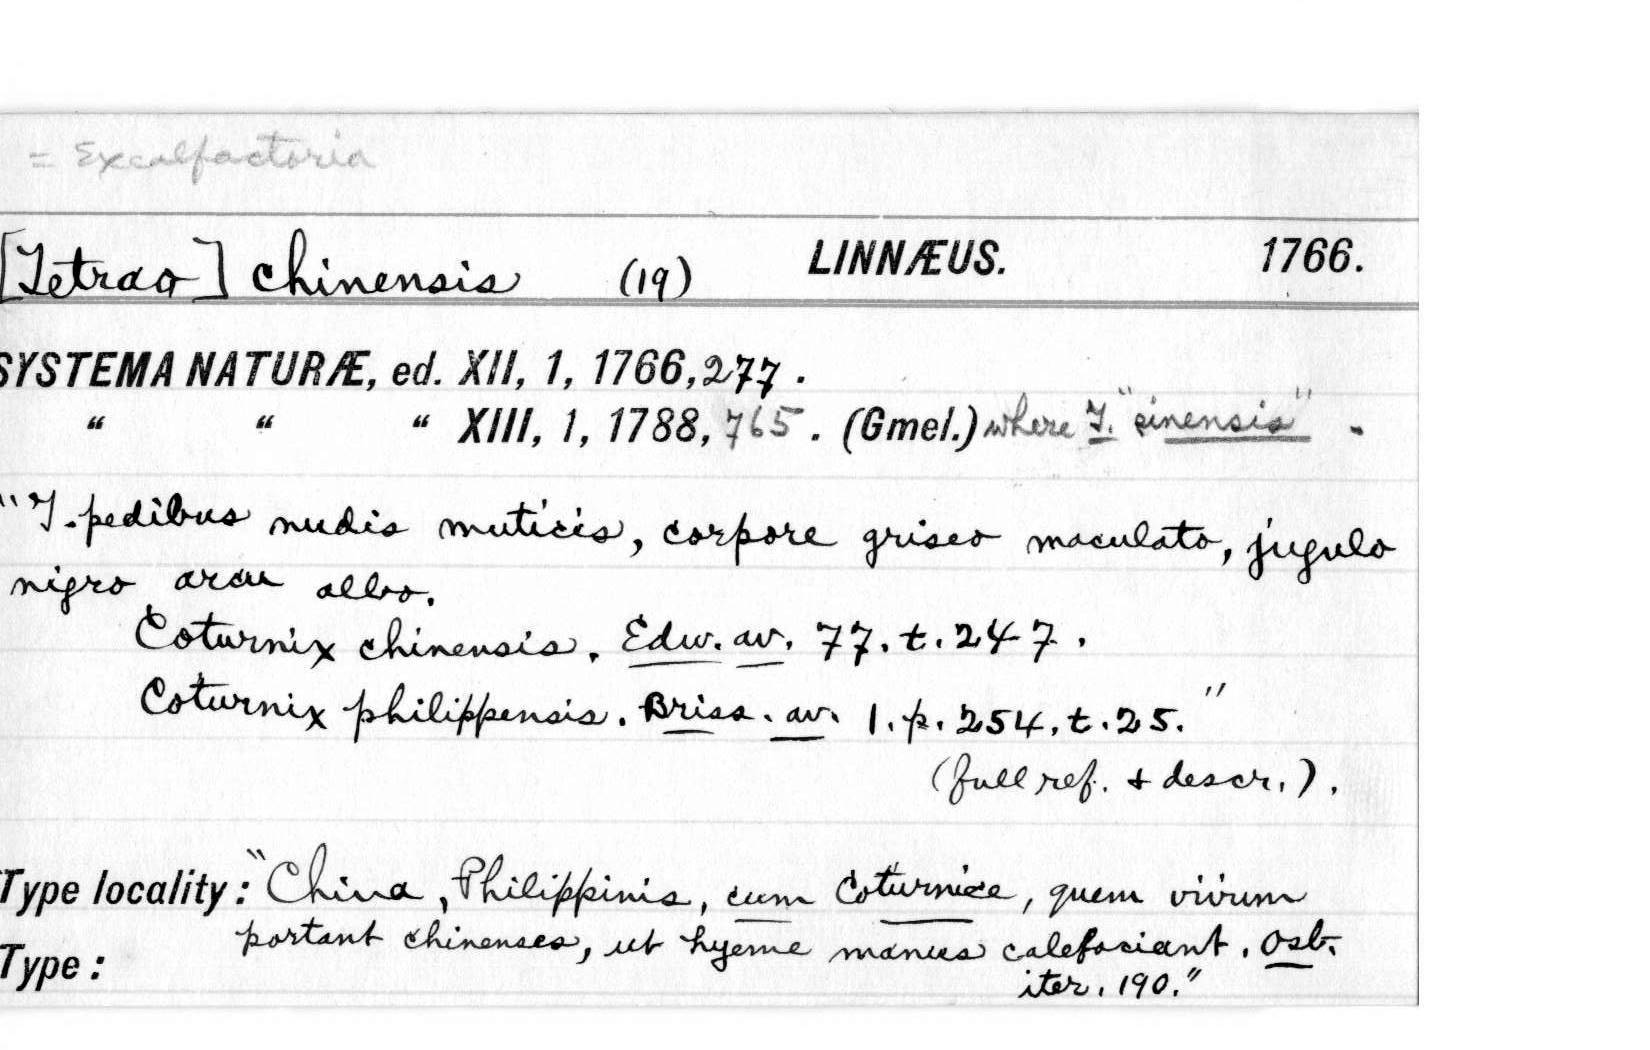 = Excalfactoria
[Tetrao] chinensis (19) LINNÆUS. 1766.
SYSTEMA NATURÆ, ed. XII, 1, 1766, 277.
“ “ “ XIII, 1, 1788, 765. (Gmel.) where T. "sinensis".
"T. pedibus nudis muticis, corpore griseo maculato, jugulo
nigro arcu albo.
Coturnix chinensis. Edw. av. 77. t. 247.
Coturnix philippensis. Briss. av. 1. p. 254. t. 25."
(full ref. + descr.).
Type locality: "China, Philippinis, cum Coturnice, quem vivum
portant chinenses, ut hyeme manus calefaciant. Osb.
iter. 190."
Type: